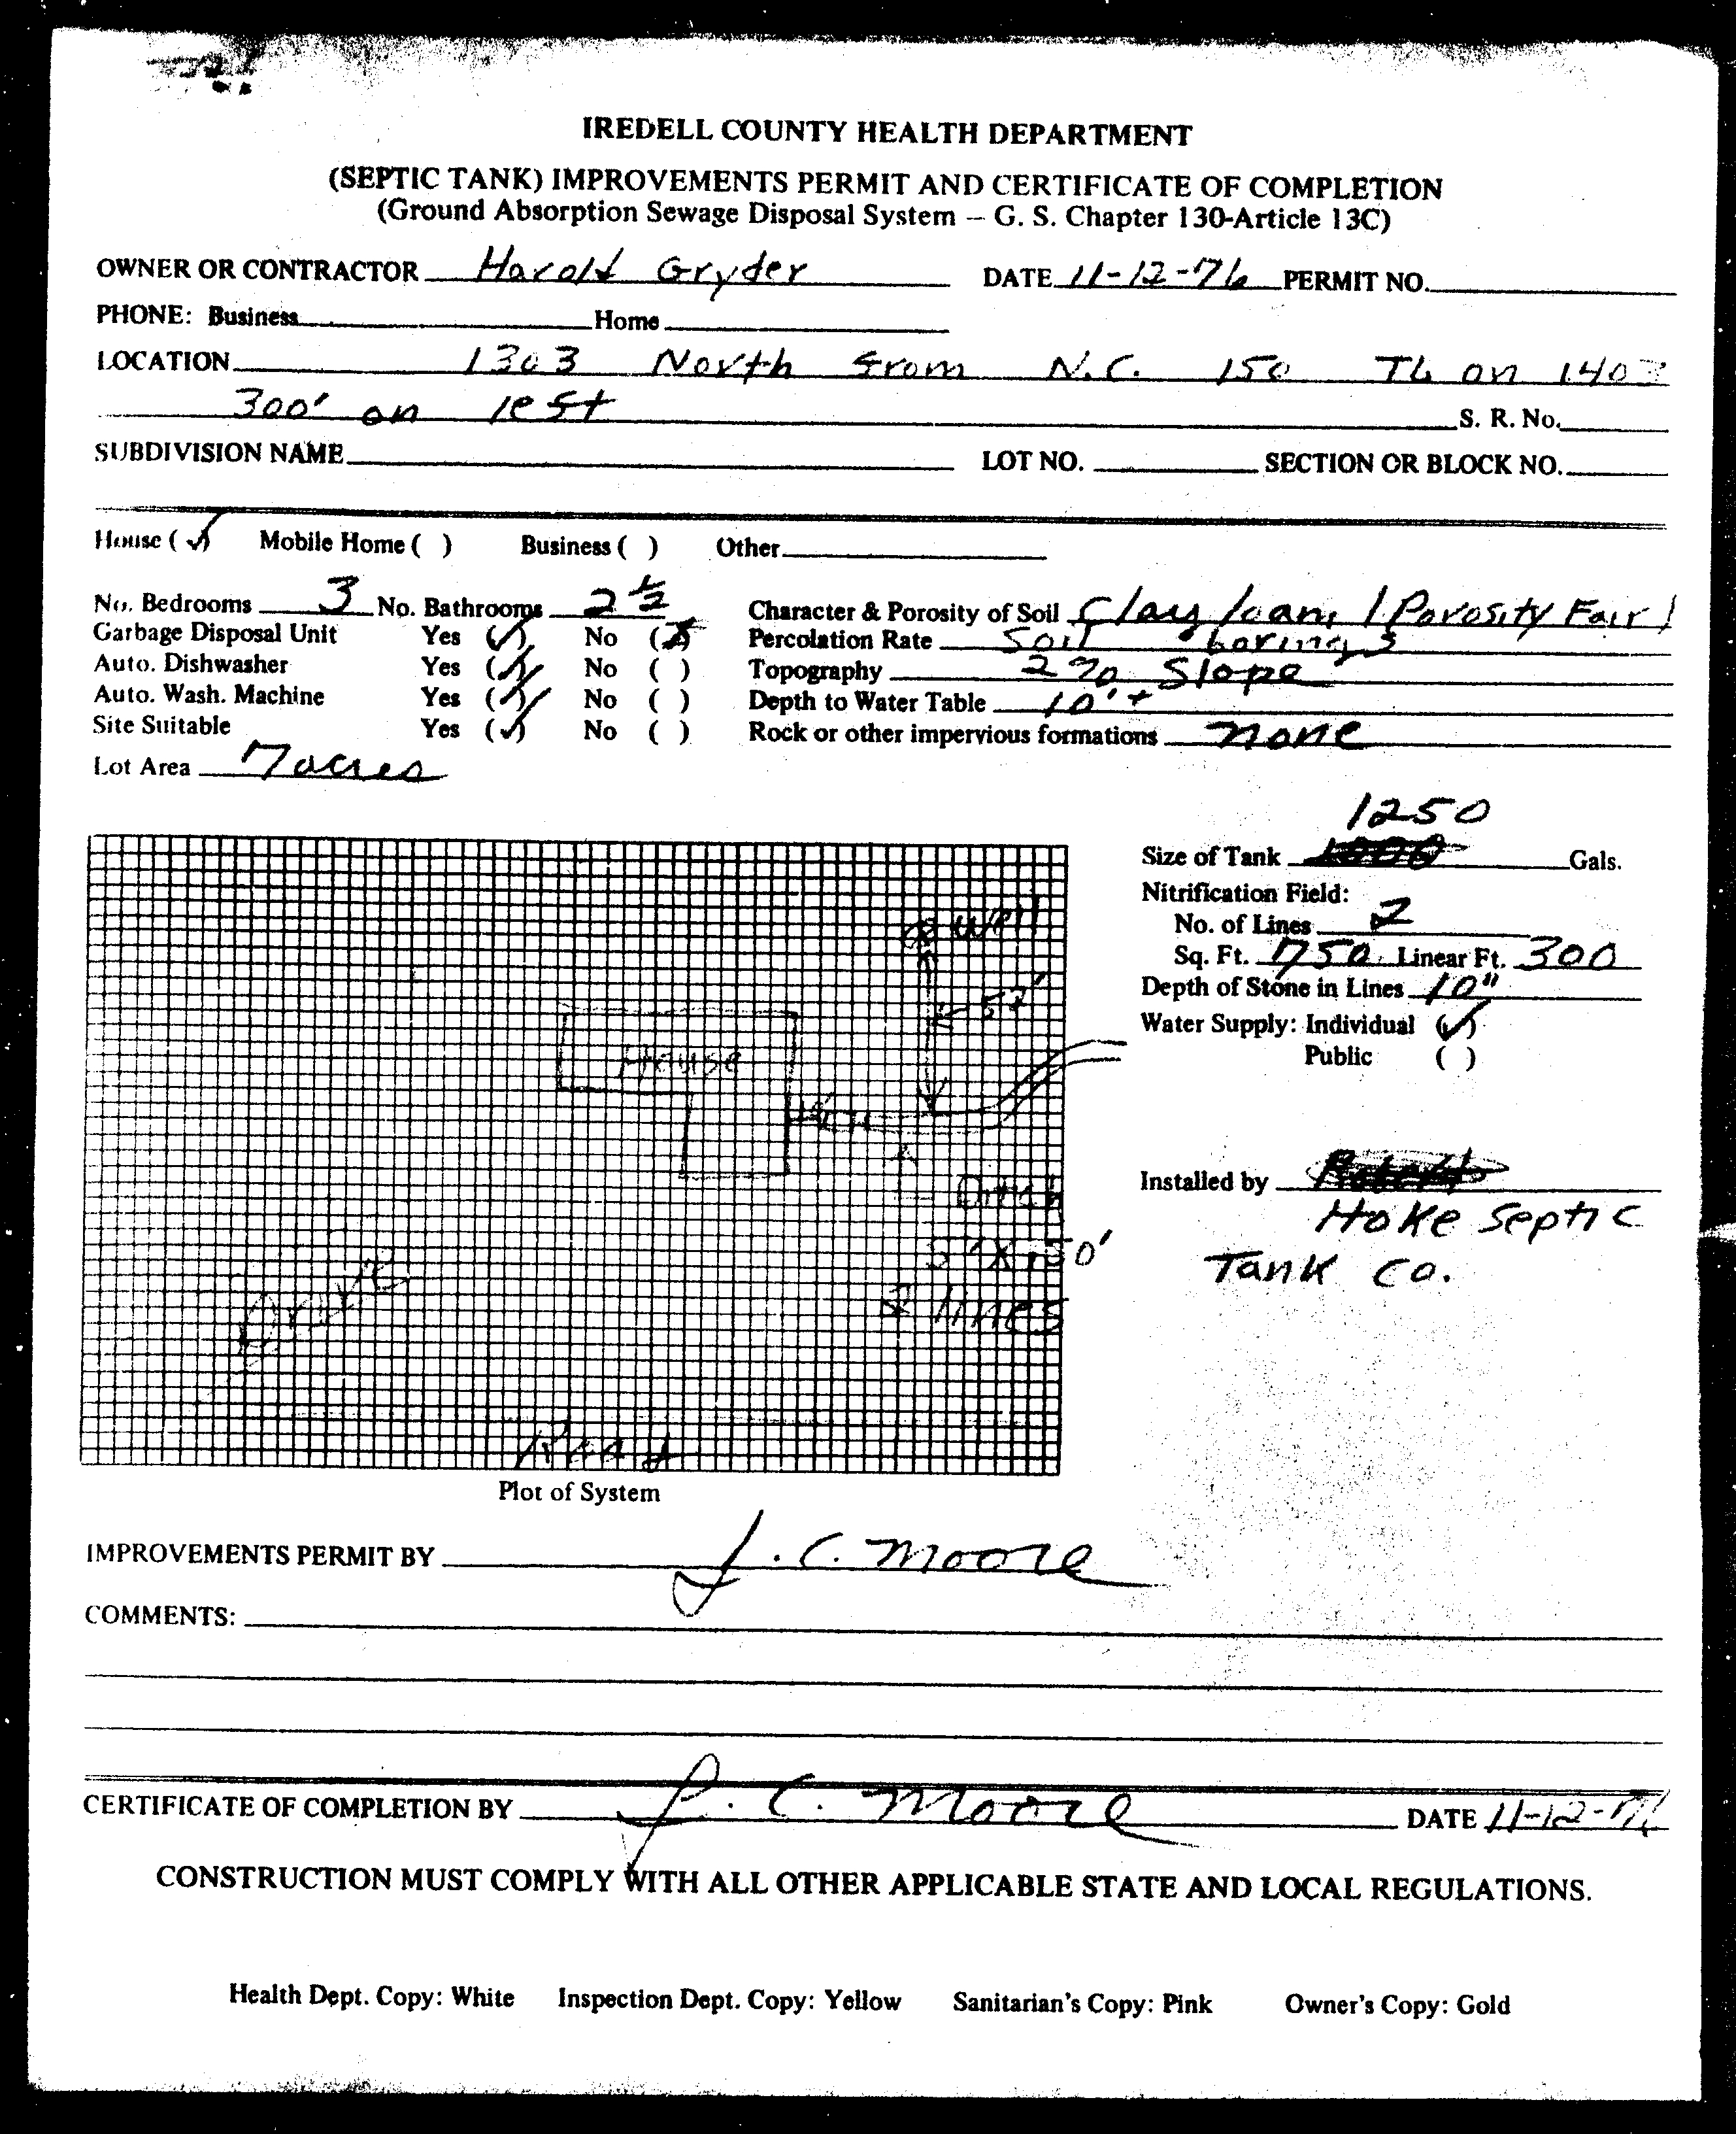 IREDELL COUNTY HEALTH DEPARTMENT
(SEPTIC TANK) IMPROVEMENTS PERMIT AND CERTIFICATE OF COMPLETION
(Ground Absorption Sewage Disposal System – G. S. Chapter 130-Article 13C)
OWNER OR CONTRACTOR Harold Gryder DATE 11-12-76 PERMIT NO.
PHONE: Business Home
LOCATION 1303 North from N.C. 150 TL on 1403
300' on left S. R. No.
SUBDIVISION NAME LOT NO. SECTION OR BLOCK NO.
House (✓) Mobile Home ( ) Business ( ) Other
No. Bedrooms 3 No. Bathrooms 2 ½ Character & Porosity of Soil Clay loam (Porosity Fair)
Garbage Disposal Unit Yes (✓) No (X) Percolation Rate Soil borings
Auto. Dishwasher Yes (✓) No ( ) Topography 2% Slope
Auto. Wash. Machine Yes (✓) No ( ) Depth to Water Table 10'+
Site Suitable Yes (✓) No ( ) Rock or other impervious formations none
Lot Area 7 acres
1250
Size of Tank 1000 Gals.
Nitrification Field:
No. of Lines 2
Sq. Ft. 750 Linear Ft. 300
Depth of Stone in Lines 10"
Water Supply: Individual (✓)
Public ( )
Well
52'
House
Ditch
Installed by
Hoke Septic
Tank Co.
2 lines
Drive
Road
Plot of System
IMPROVEMENTS PERMIT BY J. C. Moore
COMMENTS:
CERTIFICATE OF COMPLETION BY J. C. Moore DATE 11-12-76
CONSTRUCTION MUST COMPLY WITH ALL OTHER APPLICABLE STATE AND LOCAL REGULATIONS.
Health Dept. Copy: White Inspection Dept. Copy: Yellow Sanitarian's Copy: Pink Owner's Copy: Gold